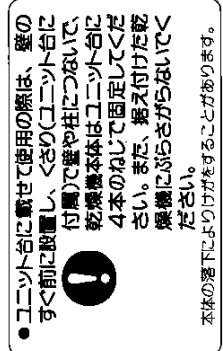 ●ユニット台に載せて使用の際は、壁の
すぐ前に設置し、くさり(ユニット台に
付属)で壁や柱につないで、
乾燥機本体はユニット台に
4本のねじで固定してくだ
さい。また、据え付けた乾
燥機にぶらさがらないでく
ださい。
本体の落下によりけがをすることがあります。